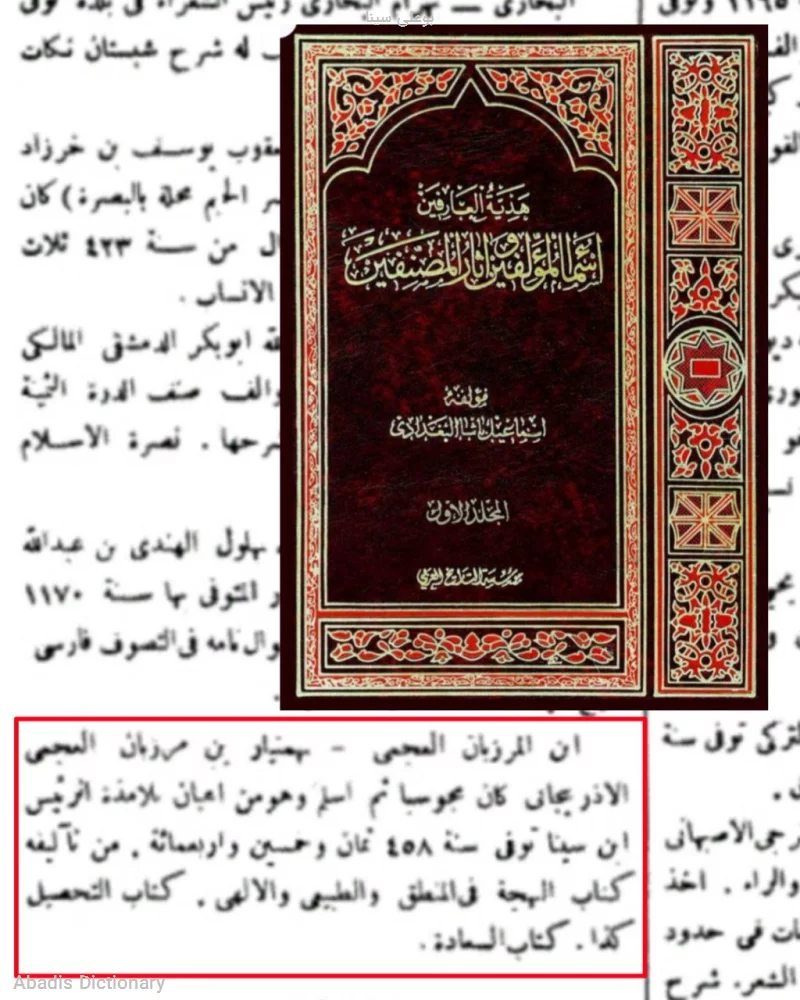 البخارى — بهرام البخارى رئيس الشعراء فى بلدة توفى
بوعلی سینا
له شرح شبستان نكات
يعقوب يوسف بن خرزاد
كان (محلة بالبصرة
من سنة ٤٢٣ ثلاث
الانساب .
ابوبكر الدمشقى المالكى
والف صنف الدرة الثمينة
شرحها . نصرة الاسلام
بهلول الهندى بن عبدالله
المتوفى بها سنة ١١٧٠
فى التصوف فارسى
هدية العارفين
اسماء المؤلفين و آثار المصنفين
مؤلفه
اسماعيل باشا البغدادى
المجلد الاول
مؤسسة التاريخ العربي
ابن المرزبان العجمى - بهمنيار بن مرزبان العجمى
الاذربيجانى كان مجوسيا ثم اسلم وهومن اعيان تلامذة الرئيس
ابن سينا توفى سنة ٤٥٨ ثمان وخمسين واربعمائة . من تآليفه
كتاب البهجة فى المنطق والطبيعى والالهى . كتاب التحصيل
كذا . كتاب السعادة .
التركى توفى سنة
الاصبهانى
والراء . اخذ
مات فى حدود
الشعر. شرح
Abadis Dictionary